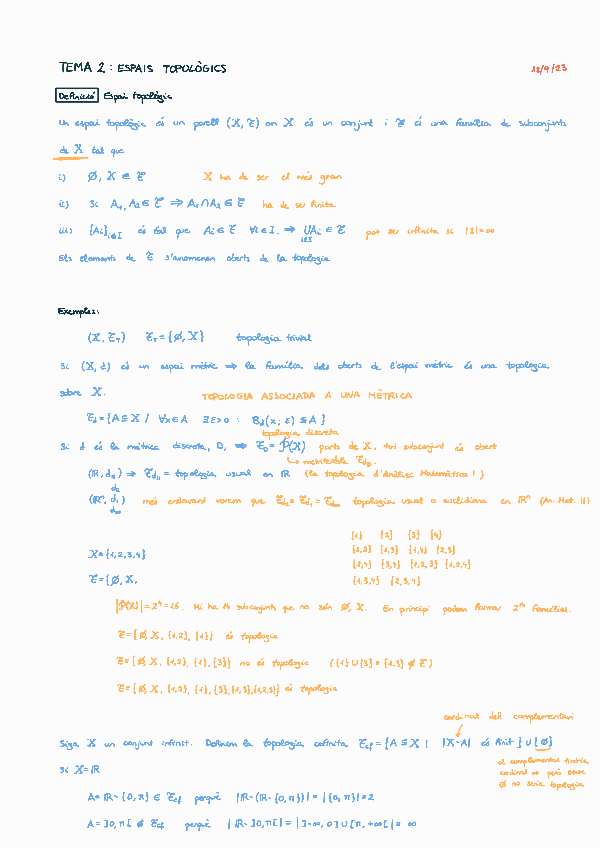 TEMA 2: ESPAIS TOPOLÒGICS 12/9/23
Definició Espai topològic
Un espai topològic és un parell (X, 𝒯) on X és un conjunt i 𝒯 és una família de subconjunts
de X tal que
i) ∅, X ∈ 𝒯 X ha de ser el més gran
ii) Si A₁, A₂ ∈ 𝒯 ⇒ A₁ ∩ A₂ ∈ 𝒯 ha de ser finita.
iii) {Ai}i∈I és tal que Ai ∈ 𝒯 ∀i ∈ I. ⇒ ∪i∈I Ai ∈ 𝒯 pot ser infinita si |I|=∞
Els elements de 𝒯 s'anomenen oberts de la topologia
Exemples:
(X, 𝒯T) 𝒯T = {∅, X} topologia trivial
Si (X, d) és un espai mètric ⇒ la família dels oberts de l'espai mètric és una topologia
sobre X. TOPOLOGIA ASSOCIADA A UNA MÈTRICA
𝒯d = {A ⊆ X / ∀x ∈ A ∃ε>0 : Bd(x; ε) ⊆ A}
topologia discreta
Si d és la mètrica discreta, D, ⇒ 𝒯D = 𝒫(X) parts de X, tot subconjunt és obert
↳ metritzable 𝒯dD.
(ℝ, d||) ⇒ 𝒯d|| = topologia usual en ℝ (la topologia d'Anàlisi Matemàtica I)
d₂
(ℝⁿ, d₁) més endavant vorem que 𝒯d₂ = 𝒯d₁ = 𝒯d∞ topologia usual o euclidiana en ℝⁿ (An. Mat. II)
d∞
{1} {2} {3} {4}
{1,2} {1,3} {1,4} {2,3}
X={1,2,3,4}
{2,4} {3,4} {1,2,3} {1,2,4}
𝒯={∅, X,
{1,3,4} {2,3,4}
|𝒫(X)| = 2⁴ = 16. Hi ha 14 subconjunts que no són ∅, X. En principi podem formar 2¹⁴ famílies.
𝒯={∅, X, {1,2}, {1}} és topologia
𝒯={∅, X, {1,2}, {1}, {3}} no és topologia ({1} ∪ {3} = {1,3} ∉ 𝒯)
𝒯={∅, X, {1,2}, {1}, {3}, {1,3}, {1,2,3}} és topologia
cardinal del complementari
Siga X un conjunt infinit. Definim la topologia cofinita 𝒯cf = {A ⊆ X / |X\A| és finit} ∪ {∅}
el complementari tindria
Si X=ℝ
cardinal ∞ però sense
∅ no seria topologia
A = ℝ\{0, π} ∈ 𝒯cf perquè |ℝ\(ℝ\{0, π})| = |{0, π}| = 2
A = ]0, π[ ∉ 𝒯cf perquè |ℝ\]0, π[| = |]-∞, 0] ∪ [π, +∞[| = ∞